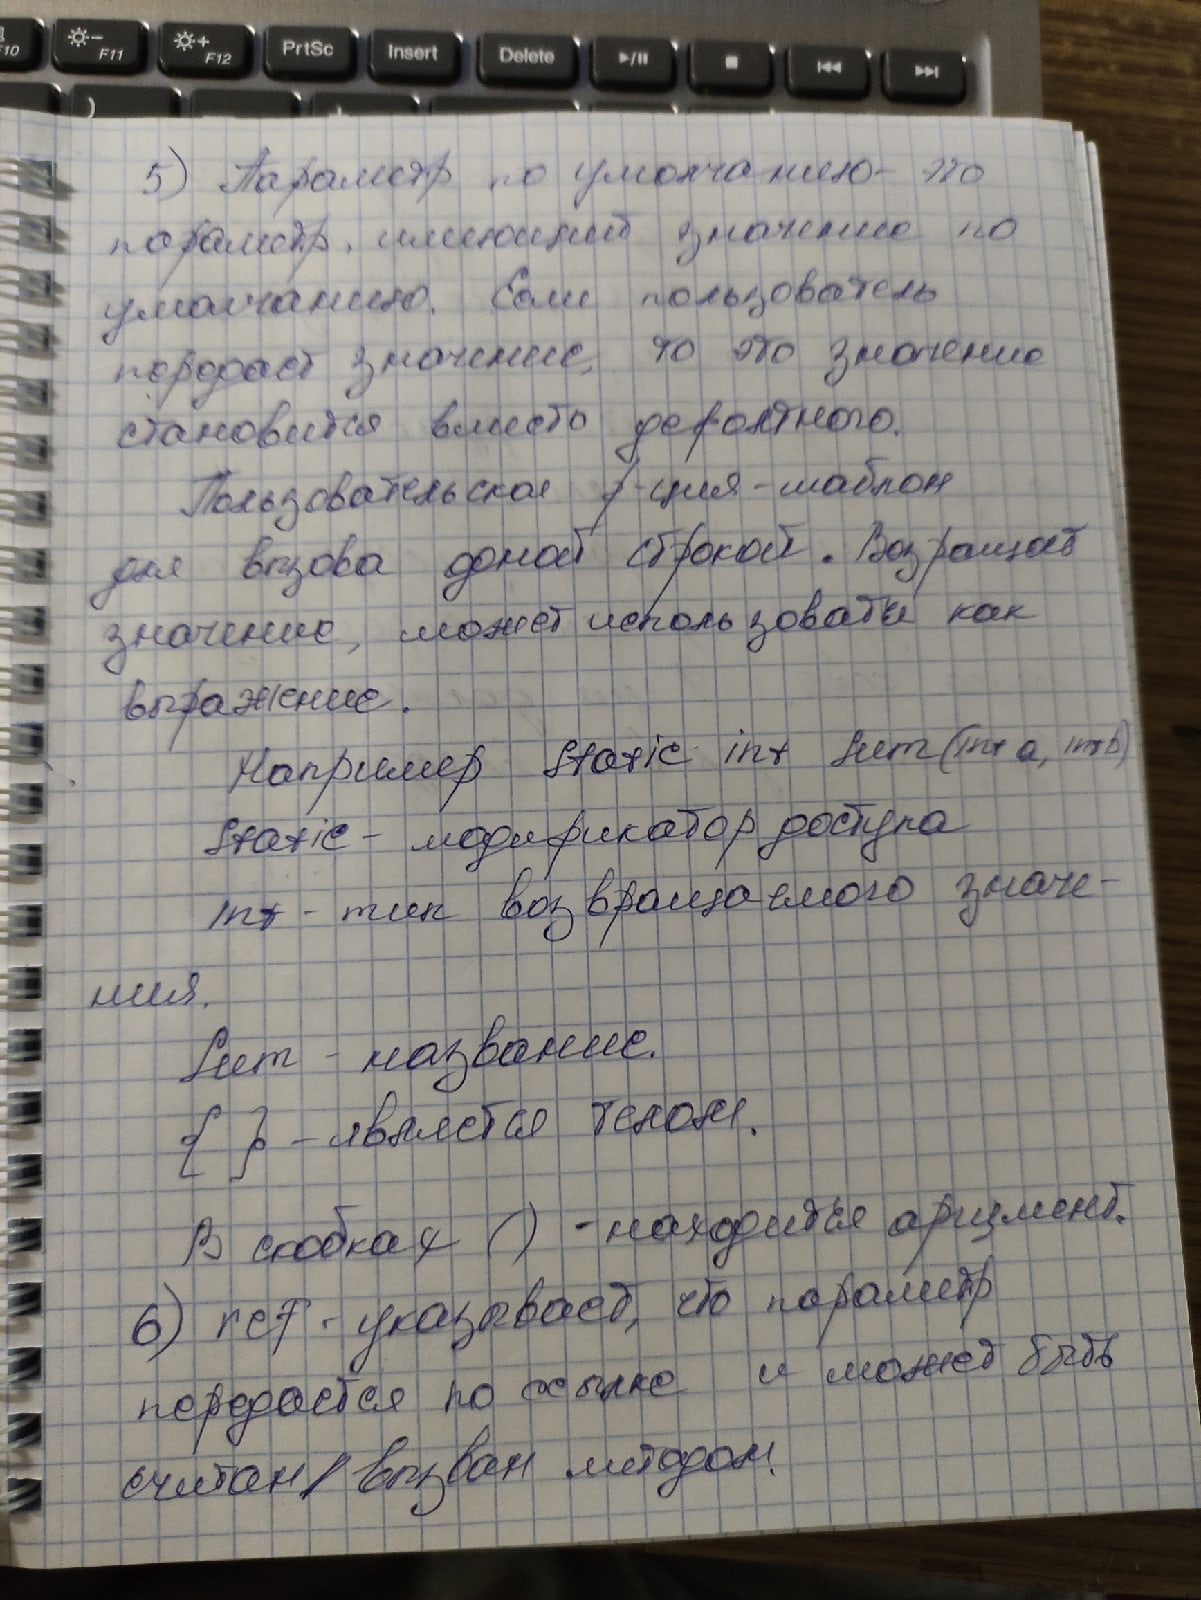 F10 F11 F12 PrtSc Insert Delete
5) Параметр по умолчанию - это
параметр, имеющий значение по
умолчанию. Если пользователь
передаст значение, то это значение
становится вместо дефолтного.
Пользовательская f-ция - шаблон
для вызова одной строкой. Возращает
значение, может использовать как
выражение.
Например static int Sum (int a, int b)
static - модификатор доступа
int - тип возвращаемого значе-
ния.
Sum - название.
{ } - является телом.
В скобках () - находится аргумент.
6) ref - указывает, что параметр
передается по ссылке и может быть
считан / вызван методом.